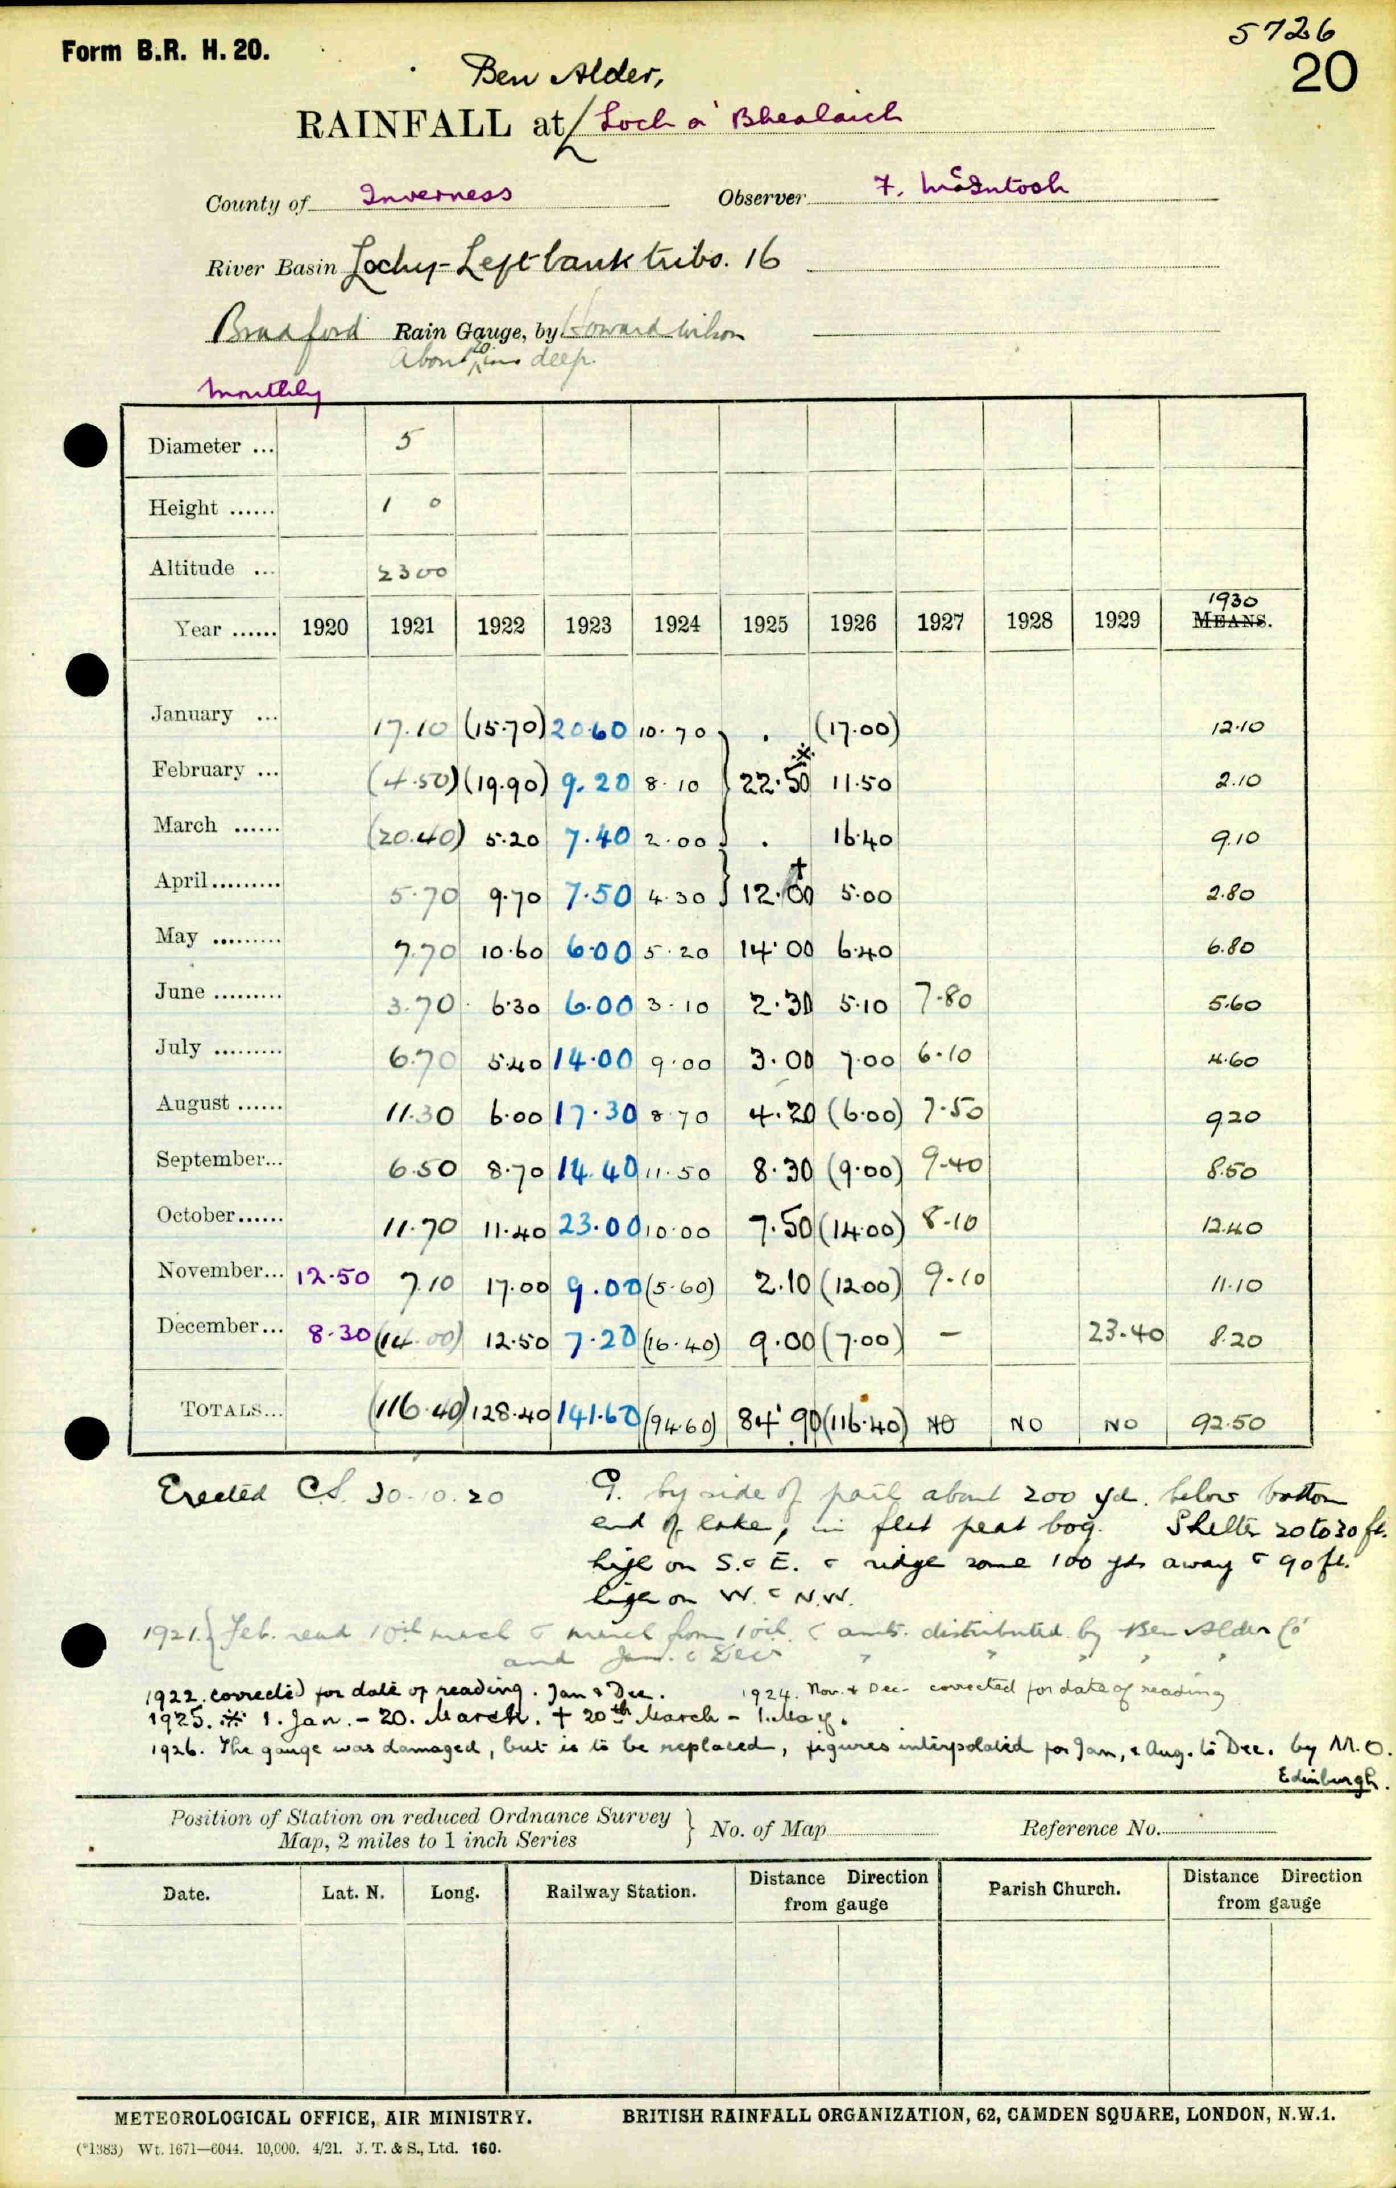 5726
Form B.R. H. 20.
20
Ben Alder,
RAINFALL at Loch a' Bhealaich
County of Inverness Observer F. McIntosh
River Basin Lochy - Left bank tribs. 16
Bradford Rain Gauge, by Howard Wilson
About 20 ins deep.
Monthly
Diameter ... 5
Height ...... 1 0
Altitude ... 2300
1930
Year ...... 1920 1921 1922 1923 1924 1925 1926 1927 1928 1929 MEANS.
January ... 17.10 (15.70) 20.60 10.70 } . (17.00) 12.10
February ... (4.50) (19.90) 9.20 8.10 } 22.50 * 11.50 2.10
March ...... (20.40) 5.20 7.40 2.00 } . 16.40 9.10
April......... 5.70 9.70 7.50 4.30 } 12.00 † 5.00 2.80
May ......... 7.70 10.60 6.00 5.20 14.00 6.40 6.80
June ......... 3.70 6.30 6.00 3.10 2.30 5.10 7.80 5.60
July ......... 6.70 5.40 14.00 9.00 3.00 7.00 6.10 4.60
August ...... 11.30 6.00 17.30 8.70 4.20 (6.00) 7.50 9.20
September... 6.50 8.70 14.40 11.50 8.30 (9.00) 9.40 8.50
October...... 11.70 11.40 23.00 10.00 7.50 (14.00) 8.10 12.40
November... 12.50 7.10 17.00 9.00 (5.60) 2.10 (12.00) 9.10 11.10
December... 8.30 (14.00) 12.50 7.20 (16.40) 9.00 (7.00) — 23.40 8.20
TOTALS... (116.40) 128.40 141.60 (94.60) 84.90 (116.40) NO NO NO 92.50
Erected C.S. 30.10.20
G. by side of path about 200 yd. below bottom
end of lake, in flat peat bog. Shelter 20 to 30 ft.
high on S. & E. & ridge some 100 yds away & 90 ft.
high on W. & N.W.
1921. { Feb. read 10th march & march from 10th & amts. distributed by Ben Alder Co
and Jan. & Dec. " " " " "
1922. corrected for date of reading. Jan & Dec. 1924. Nov. & Dec. corrected for date of reading
1925. * 1. Jan. - 20. March. † 20th March - 1. May.
1926. The gauge was damaged, but is to be replaced, figures interpolated for Jan, & Aug. to Dec. by M.O.
Edinburgh.
Position of Station on reduced Ordnance Survey
Map, 2 miles to 1 inch Series } No. of Map Reference No.
Date. Lat. N. Long. Railway Station. Distance Direction from gauge Parish Church. Distance Direction from gauge
METEOROLOGICAL OFFICE, AIR MINISTRY. BRITISH RAINFALL ORGANIZATION, 62, CAMDEN SQUARE, LONDON, N.W.1.
(*1383) Wt. 1671—6044. 10,000. 4/21. J. T. & S., Ltd. 160.